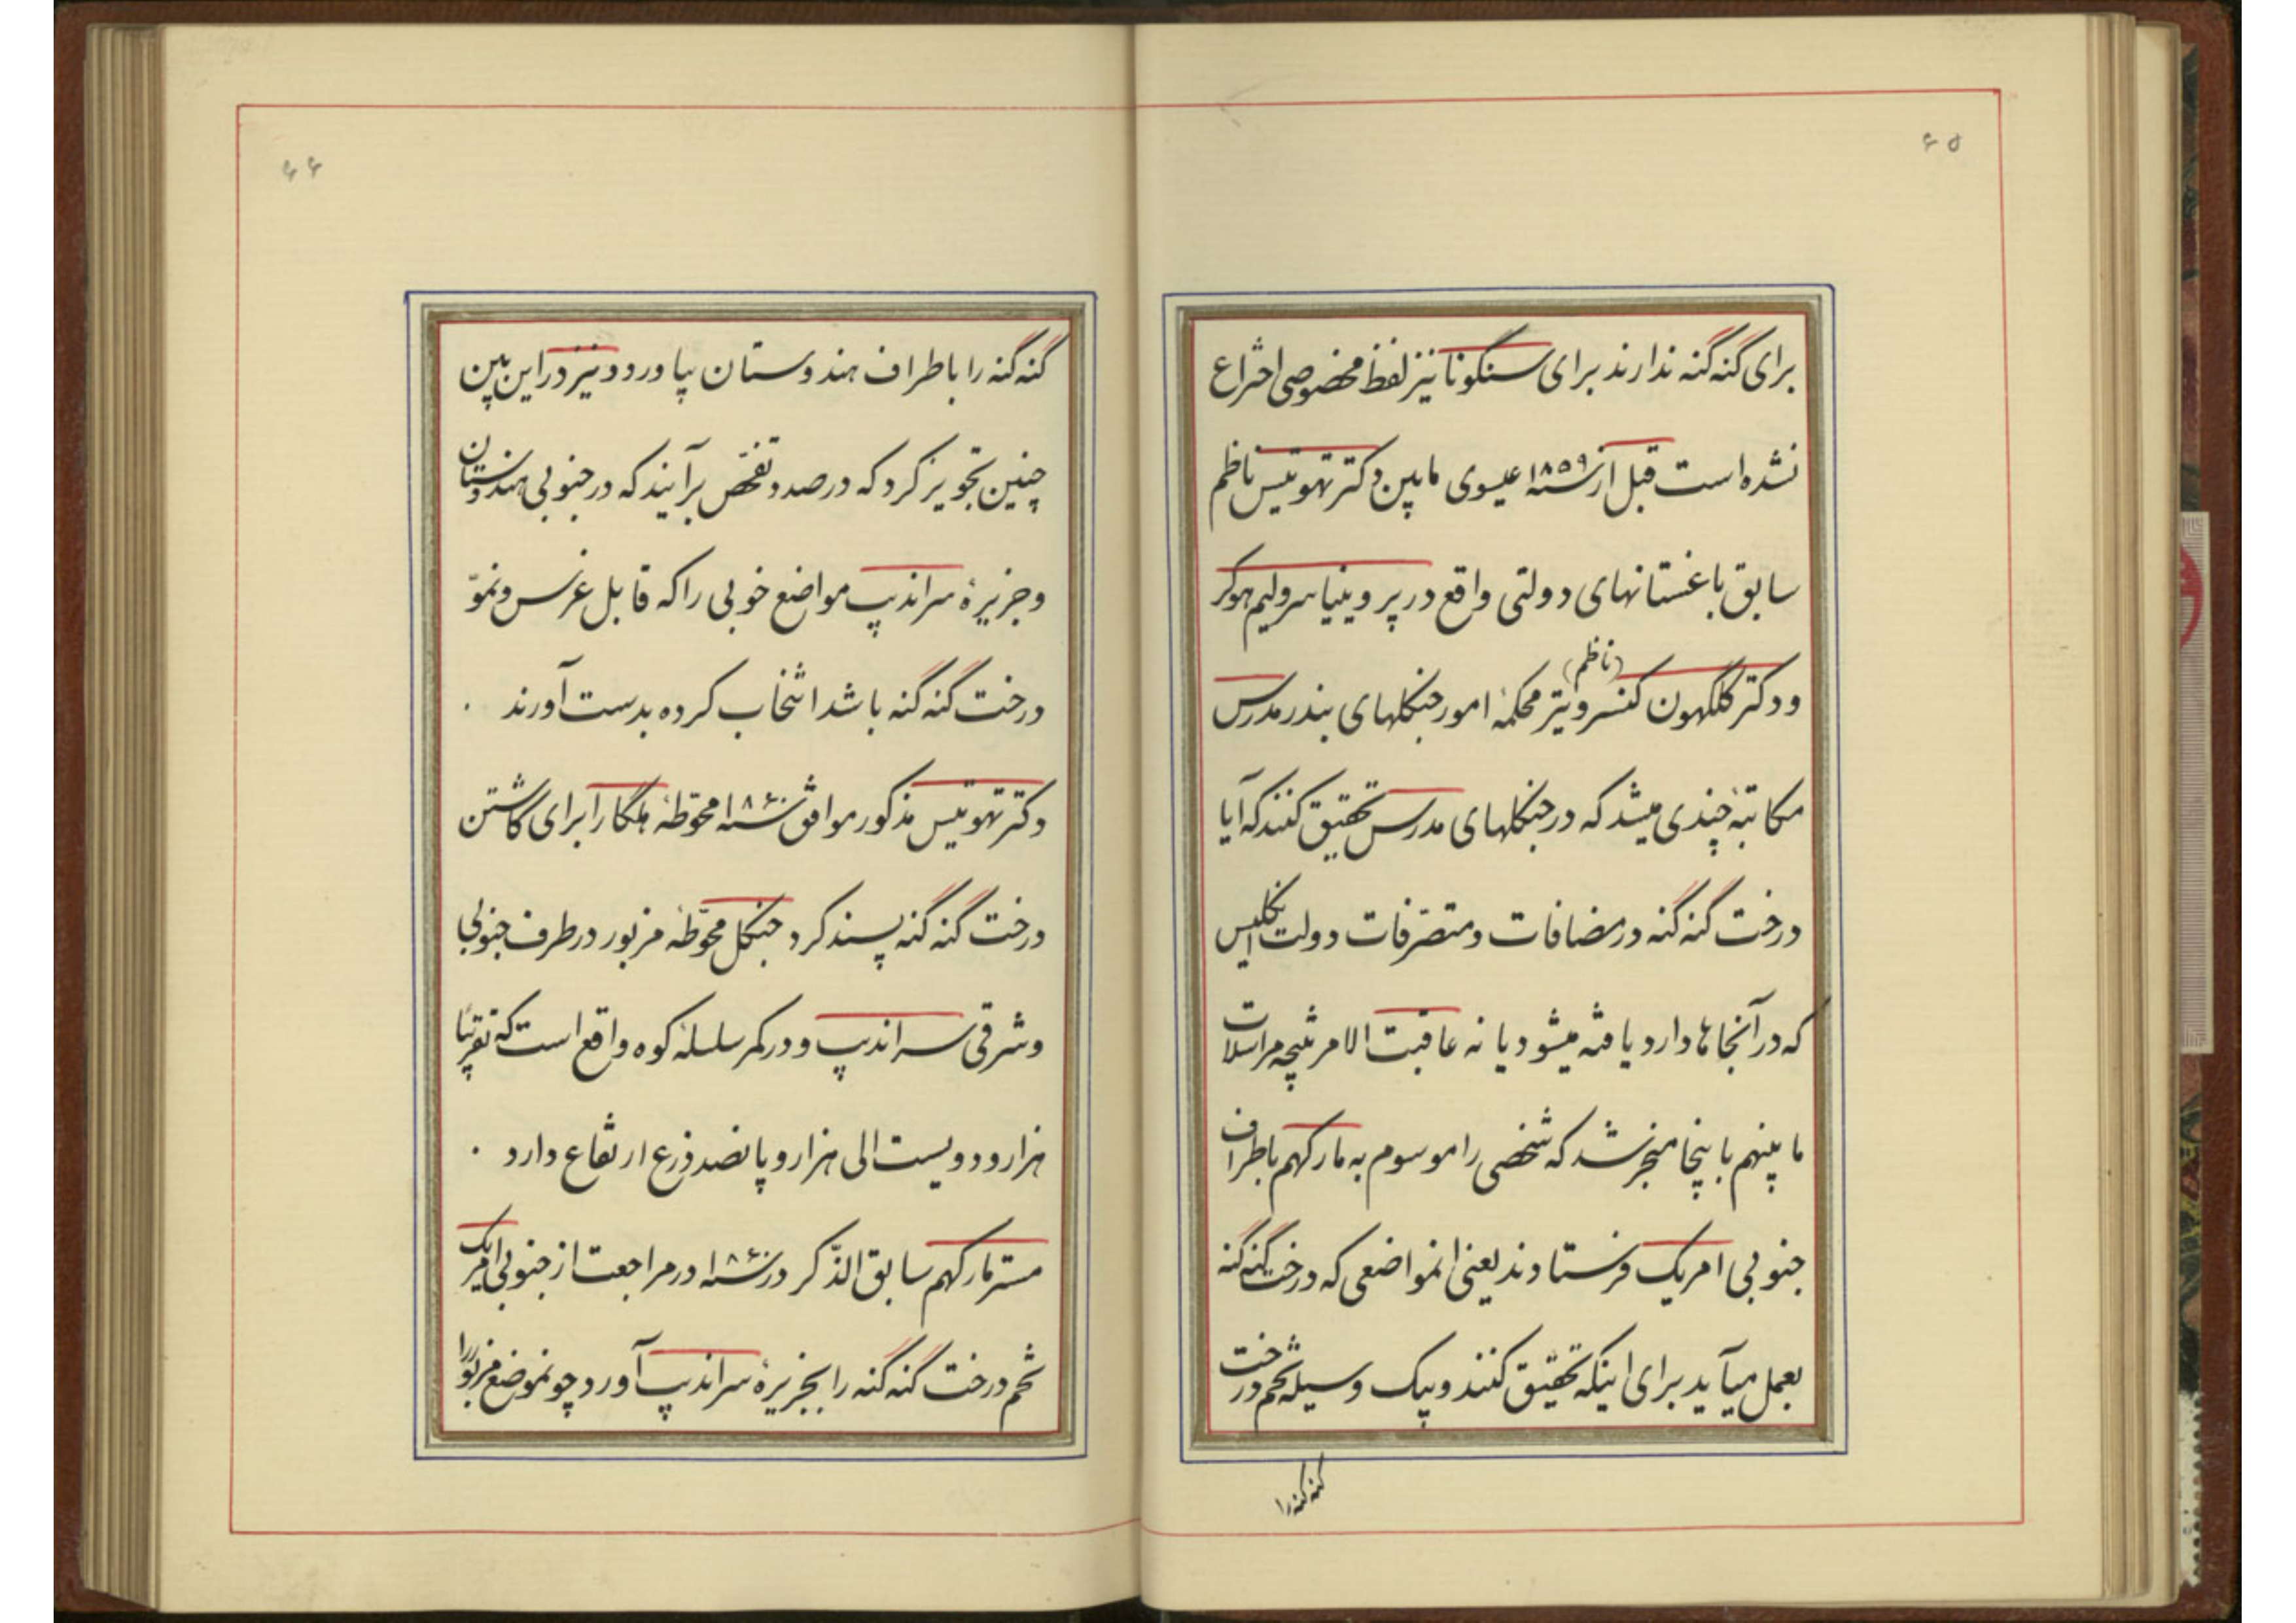 ۶۵
برای گنه‌گنه ندارند برای سنگونا نیز لفظ مخصوصی اختراع
نشده است قبل از سنه ۱۸۵۹ عیسوی مابین دکتر تهوتیس ناظم
سابق باغستانهای دولتی واقع در پروینیا سرولیم هوکر
ودکتر کلگهون کنسرویتر (ناظم) محکمهٔ امور جنگلهای بندر مدرس
مکاتبهٔ چندی میشد که در جنگلهای مدرس تحقیق کنند که آیا
درخت گنه‌گنه در مضافات ومتصرّفات دولت انگلیس
که در آنجاها دارد یافته میشود یا نه عاقبت الامر نتیجه مراسلات
مابینهم باینجا منجر شد که شخصی را موسوم به مارکهم باطراف
جنوبی امریک فرستادند یعنی انمواضعی که درخت گنه‌گنه
بعمل میآید برای اینکه تحقیق کنند وبیک وسیله تخم درخت
گنه‌گنه را
۶۶
گنه‌گنه را باطراف هندوستان بیاورد ونیز در این بین
چنین تجویز کرد که در صدد تفحّص برآیند که در جنوبی هندوستان
وجزیرهٔ سراندیب مواضع خوبی را که قابل غرس ونموّ
درخت گنه‌گنه باشد انتخاب کرده بدست آورند ۰
دکتر تهوتیس مذکور موافق سنه ۱۸۶۰ محوّطهٔ هلگارا برای کاشتن
درخت گنه‌گنه پسند کرد جنگل محوّطهٔ مزبور در طرف جنوبی
وشرقی سراندیب ودر کمر سلسلهٔ کوه واقع است که تقریبًا
هزار ودویست الی هزار وپانصد ذرع ارتفاع دارد ۰
مستر مارکهم سابق الذّکر در سنه ۱۸۶۰ در مراجعت از جنوبی امریک
تخم درخت گنه‌گنه را بجزیرهٔ سراندیب آورد چونموضع مزبور را